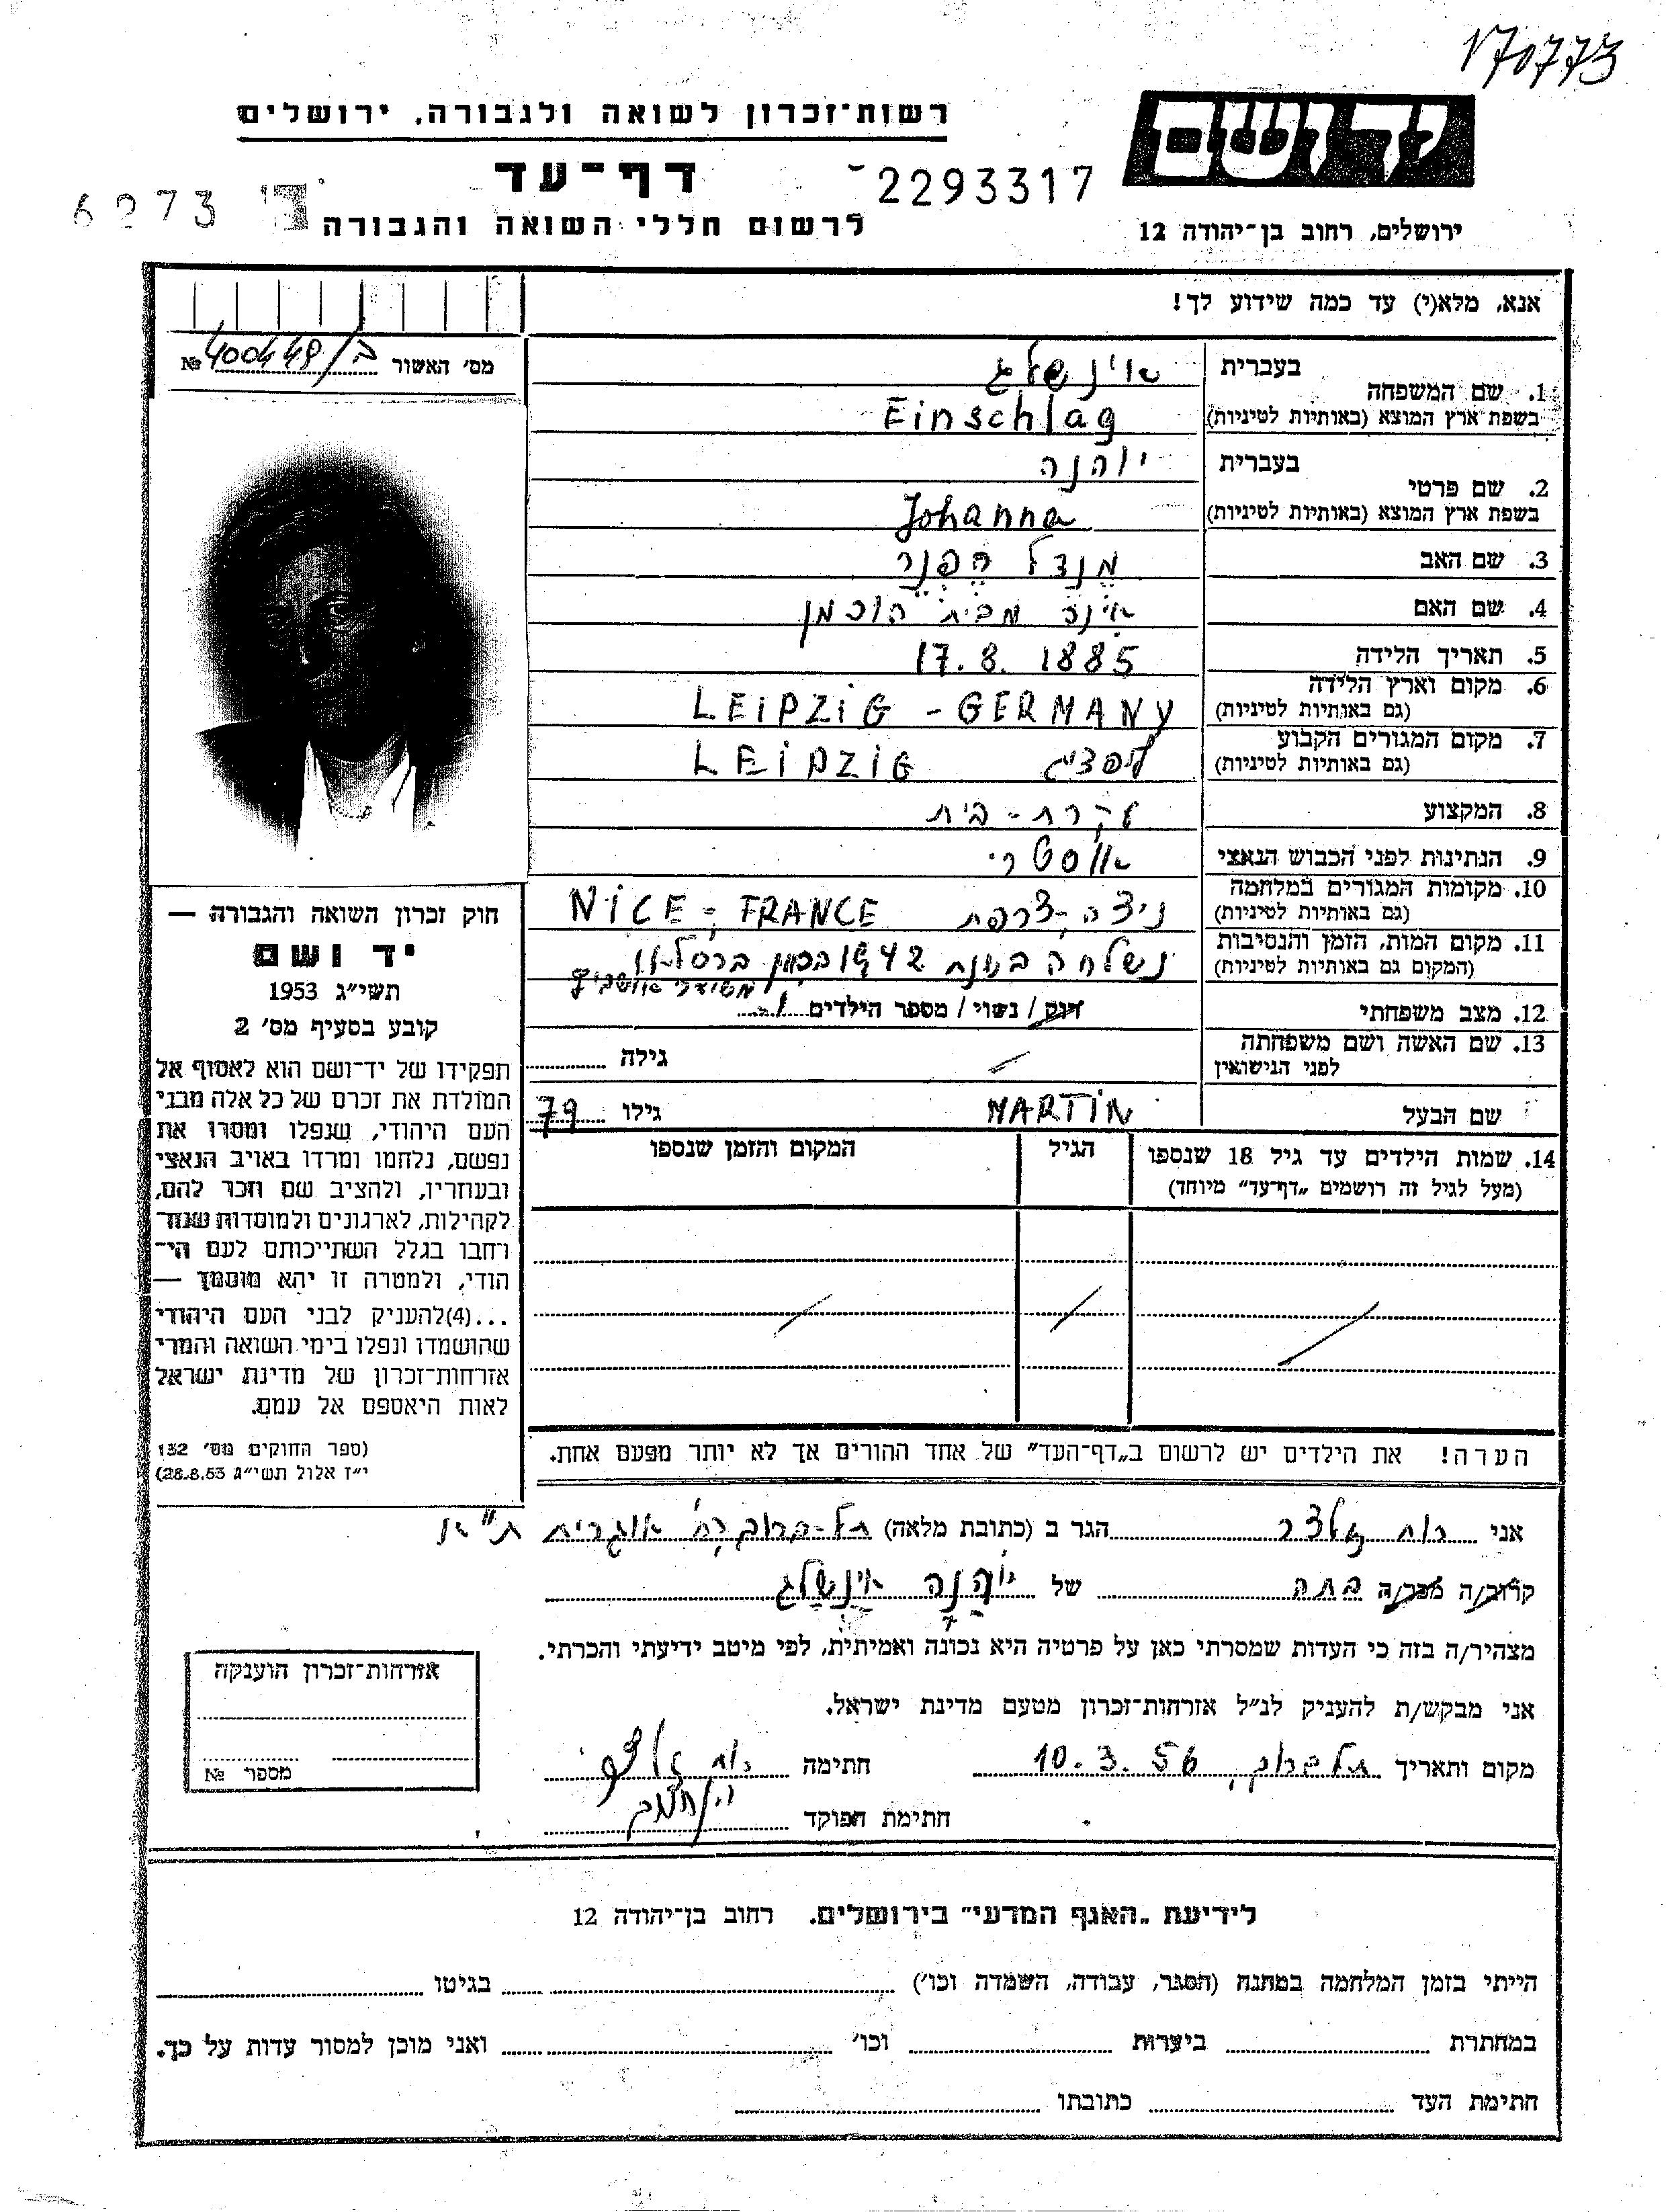 170773
רשות־זכרון לשואה ולגבורה, ירושלים
יד ושם
דף־עד
2293317
6273
לרשום חללי השואה והגבורה
ירושלים, רחוב בן־יהודה 12
אנא, מלא(י) עד כמה שידוע לך!
מס׳ האשור ב/400448 №
1. שם המשפחה
בעברית אינשלג
בשפת ארץ המוצא (באותיות לטיניות) Einschlag
בעברית יוהנה
2. שם פרטי
בשפת ארץ המוצא (באותיות לטיניות) Johanna
3. שם האב מנדל הפנר
4. שם האם מבית הוכמן
5. תאריך הלידה 17.8.1885
6. מקום וארץ הלידה
(גם באותיות לטיניות) LEIPZIG - GERMANY
7. מקום המגורים הקבוע
(גם באותיות לטיניות) לפציג LEIPZIG
8. המקצוע עקרת-בית
9. הנתינות לפני הכבוש הנאצי אוסטרי
10. מקומות המגורים במלחמה
(גם באותיות לטיניות) ניצה-צרפת NICE - FRANCE
11. מקום המות, הזמן והנסיבות
(המקום גם באותיות לטיניות) נשלחה בשנת 1942 ברסלאו
12. מצב משפחתי רווק / נשוי / מספר הילדים
13. שם האשה ושם משפחתה
לפני הנישואין גילה
שם הבעל MARTIN גילו 79
14. שמות הילדים עד גיל 18 שנספו
(מעל לגיל זה רושמים „דף־עד” מיוחד)
הגיל
המקום והזמן שנספו
הערה! את הילדים יש לרשום ב„דף־העד” של אחד ההורים אך לא יותר מפעם אחת.
חוק זכרון השואה והגבורה —
יד ושם
תשי״ג 1953
קובע בסעיף מס׳ 2
תפקידו של יד־ושם הוא לאסוף אל
המולדת את זכרם של כל אלה מבני
העם היהודי, שנפלו ומסרו את
נפשם, נלחמו ומרדו באויב הנאצי
ובעוזריו, ולהציב שם וזכר להם,
לקהילות, לארגונים ולמוסדות שנח־
רחבו בגלל השתייכותם לעם הי־
הודי, ולמטרה זו יהא מוסמך —
...(4)להעניק לבני העם היהודי
שהושמדו ונפלו בימי השואה והמרי
אזרחות־זכרון של מדינת ישראל
לאות היאספם אל עמם.
(ספר החוקים מס׳ 132
י״ז אלול תשי״ג 28.8.53)
אני רות הגר ב (כתובת מלאה) תל-ברוך ת״א
קרוב/ה מכר/ה בתה של יוהנה אינשלג
מצהיר/ה בזה כי העדות שמסרתי כאן על פרטיה היא נכונה ואמיתית, לפי מיטב ידיעתי והכרתי.
אני מבקש/ת להעניק לנ״ל אזרחות־זכרון מטעם מדינת ישראל.
מקום ותאריך תל ברוך, 10.3.56 חתימה רות
חתימת הפוקד
אזרחות־זכרון הוענקה
מספר №
לידיעת „האגף המדעי” בירושלים. רחוב בן־יהודה 12
הייתי בזמן המלחמה במחנה (הסגר, עבודה, השמדה וכו׳) בגיטו
במחתרת ביערות וכו׳ ואני מוכן למסור עדות על כך.
חתימת העד כתובתו